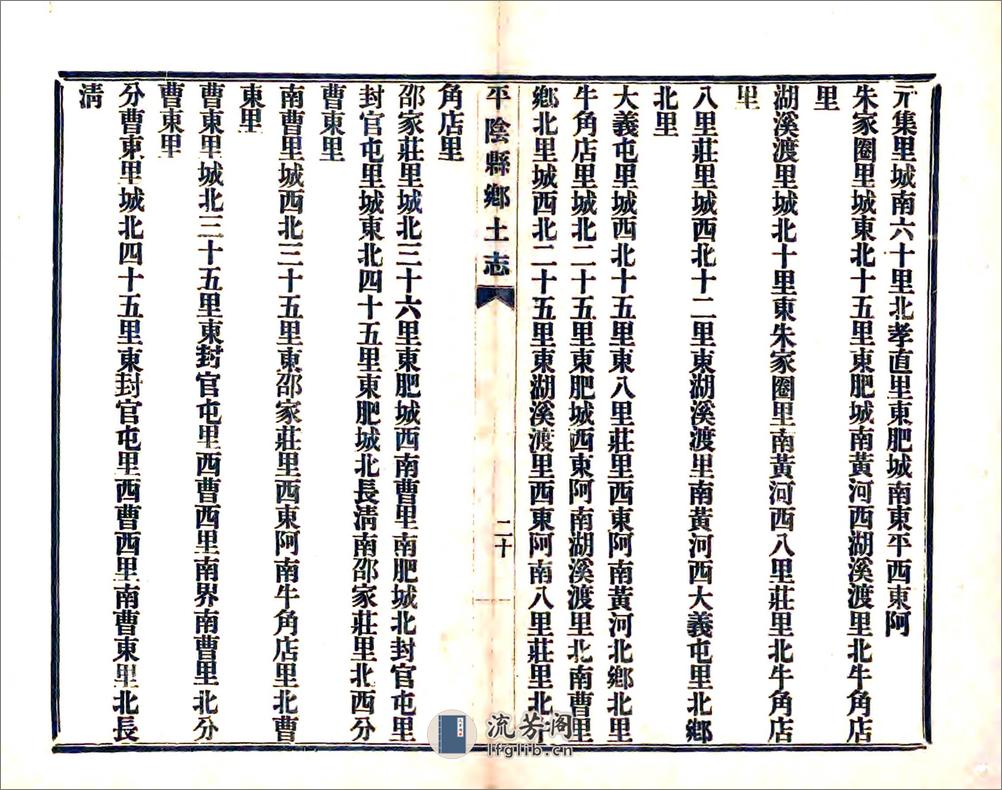 元集里城南六十里北孝直里東肥城南東平西東阿
朱家圈里城東北十五里東肥城南黃河西湖溪渡里北牛角店
里
湖溪渡里城北十里東朱家圈里南黃河西八里莊里北牛角店
里
八里莊里城西北十二里東湖溪渡里南黃河西大義屯里北鄉
北里
大義屯里城西北十五里東八里莊里西東阿南黃河北鄉北里
牛角店里城北二十五里東肥城西東阿南湖溪渡里北南曹里
鄉北里城西北二十五里東湖溪渡里西東阿南八里莊里北牛
平陰縣鄉土志
二十
角店里
邵家莊里城北三十六里東肥城西南曹里南肥城北封官屯里
封官屯里城東北四十五里東肥城北長清南邵家莊里北西分
曹東里
南曹里城西北三十五里東邵家莊里西東阿南牛角店里北曹
東里
曹東里城北三十五里東封官屯里西曹西里南界南曹里北分
曹東里
分曹東里城北四十五里東封官屯里西曹西里南曹東里北長
清
流芳阁
lfglib.cn